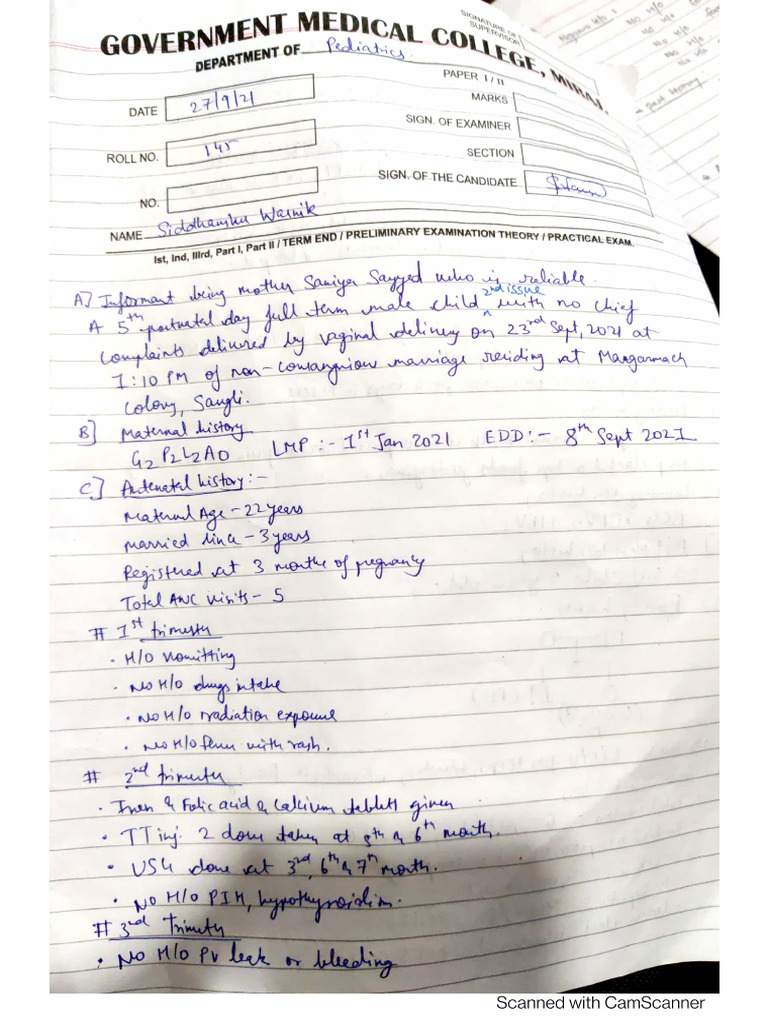 SIGNATURE OF
SUPERVISOR
GOVERNMENT MEDICAL COLLEGE, MIRAJ.
DEPARTMENT OF Pediatrics.
PAPER I / II
DATE 27/9/21
MARKS
SIGN. OF EXAMINER
ROLL NO. 145
SECTION
SIGN. OF THE CANDIDATE
NO.
NAME Siddhanika Warnik
Ist, IInd, IIIrd, Part I, Part II / TERM END / PRELIMINARY EXAMINATION THEORY / PRACTICAL EXAM.
A] Informant being mother Saniya Sayyed who is reliable.
2nd issue
A 5th postnatal day full term male child with no chief
complaints delivered by vaginal delivery on 23rd Sept, 2021 at
1:10 PM of non-consanguious marriage residing at Mangarmach
Colony, Sangli.
B] Maternal history
G2 P2 L2 A0 LMP :- 1st Jan 2021 EDD :- 8th Sept 2021.
C] Antenatal history :-
Maternal Age - 22 years
Married since - 3 years
Registered at 3 months of pregnancy
Total ANC visits - 5
# 1st trimester
• H/O vomitting
• No H/O drugs intake
• No H/O radiation exposure
• No H/O fever with rash.
# 2nd trimester
• Iron & Folic acid & Calcium tablets given
• TT inj. 2 dose taken at 5th & 6th month.
• USG done at 3rd, 6th & 7th month.
• No H/O PIH, hypothyroidism.
# 3rd Trimester
• No H/O PV leak or bleeding
Scanned with CamScanner